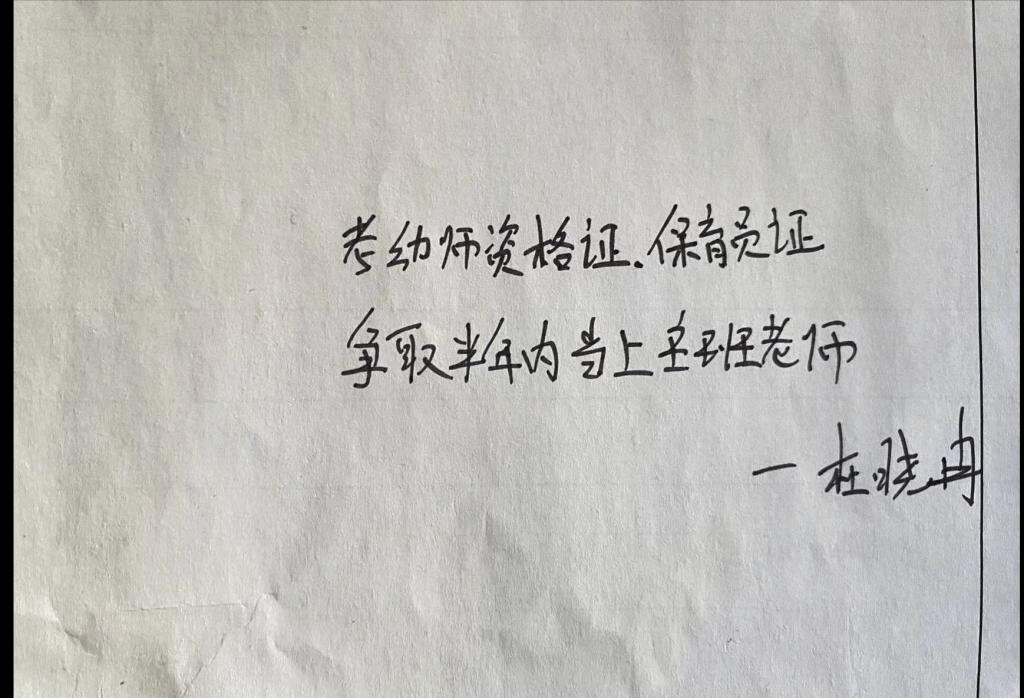 考幼师资格证.保育员证
争取半年内当上主班老师
一杜晓冉